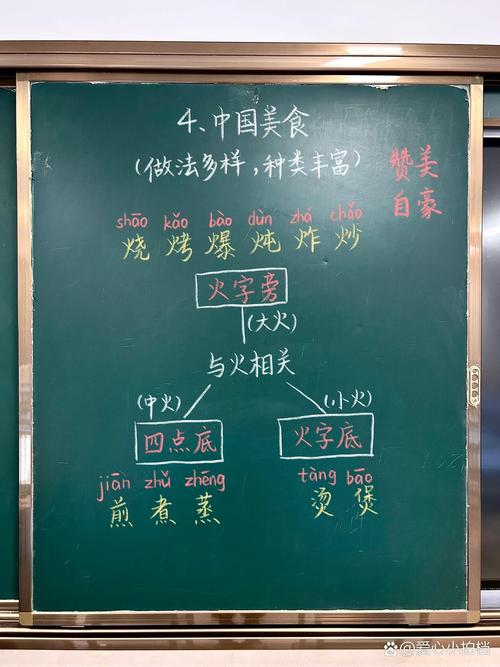 4、中国美食
（做法多样，种类丰富）
赞美
自豪
shāo kǎo bào dùn zhá chǎo
烧 烤 爆 炖 炸 炒
火字旁
(大火)
与火相关
(中火)
(小火)
四点底
火字底
jiān zhǔ zhēng
煎 煮 蒸
tàng bāo
烫 煲
@爱心小拍档